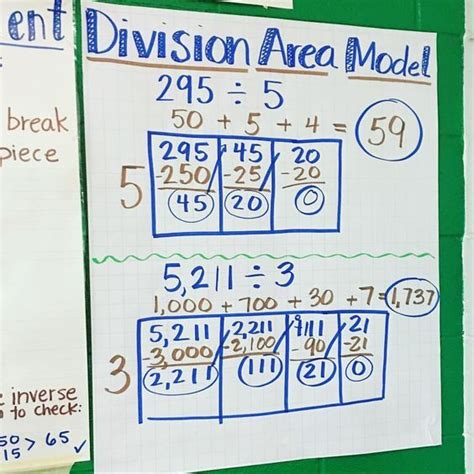 ent
break
piece
inverse
to check:
50
15 > 65 ✓
Division Area Model
295 ÷ 5
50 + 5 + 4 = 59
5
295 45 20
-250 -25 -20
45 20 0
5,211 ÷ 3
1,000 + 700 + 30 + 7 = 1,737
3
5,211 2,211 111 21
-3,000 -2,100 -90 -21
2,211 111 21 0